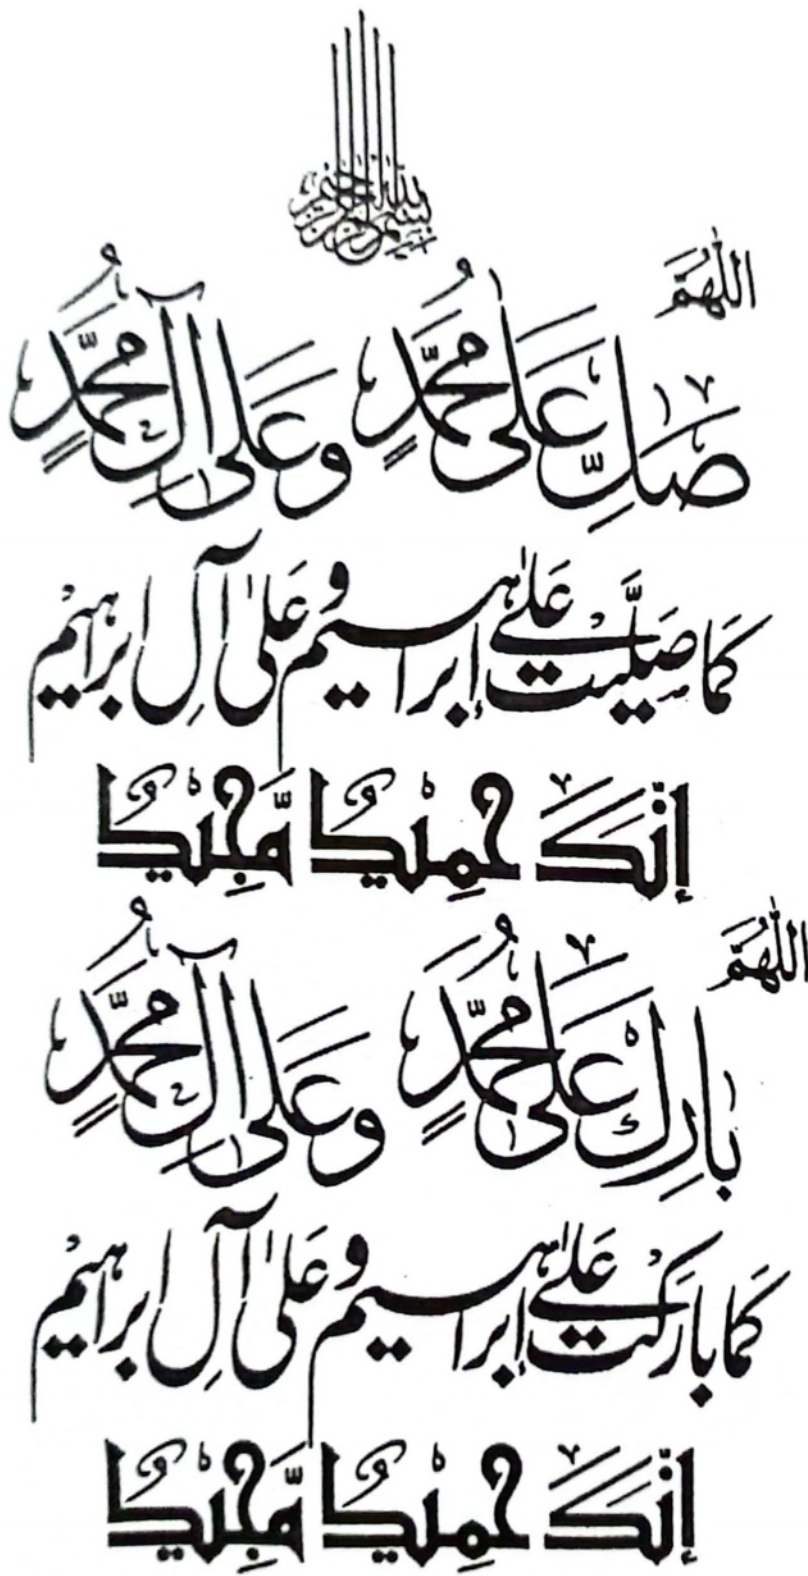 بسم الله الرحمن الرحيم
اللّٰهُمَّ
صَلِّ عَلَى مُحَمَّدٍ وَعَلَى آلِ مُحَمَّدٍ
كَمَا صَلَّيْتَ عَلٰى إِبْرَاهِيْمَ وَعَلٰى آلِ اِبْرَاهِيْمَ
إِنَّكَ حَمِيْدٌ مَّجِيْدٌ
اللّٰهُمَّ
بَارِكْ عَلَى مُحَمَّدٍ وَعَلَى آلِ مُحَمَّدٍ
كَمَا بَارَكْتَ عَلٰى إِبْرَاهِيْمَ وَعَلٰى آلِ اِبْرَاهِيْمَ
إِنَّكَ حَمِيْدٌ مَّجِيْدٌ